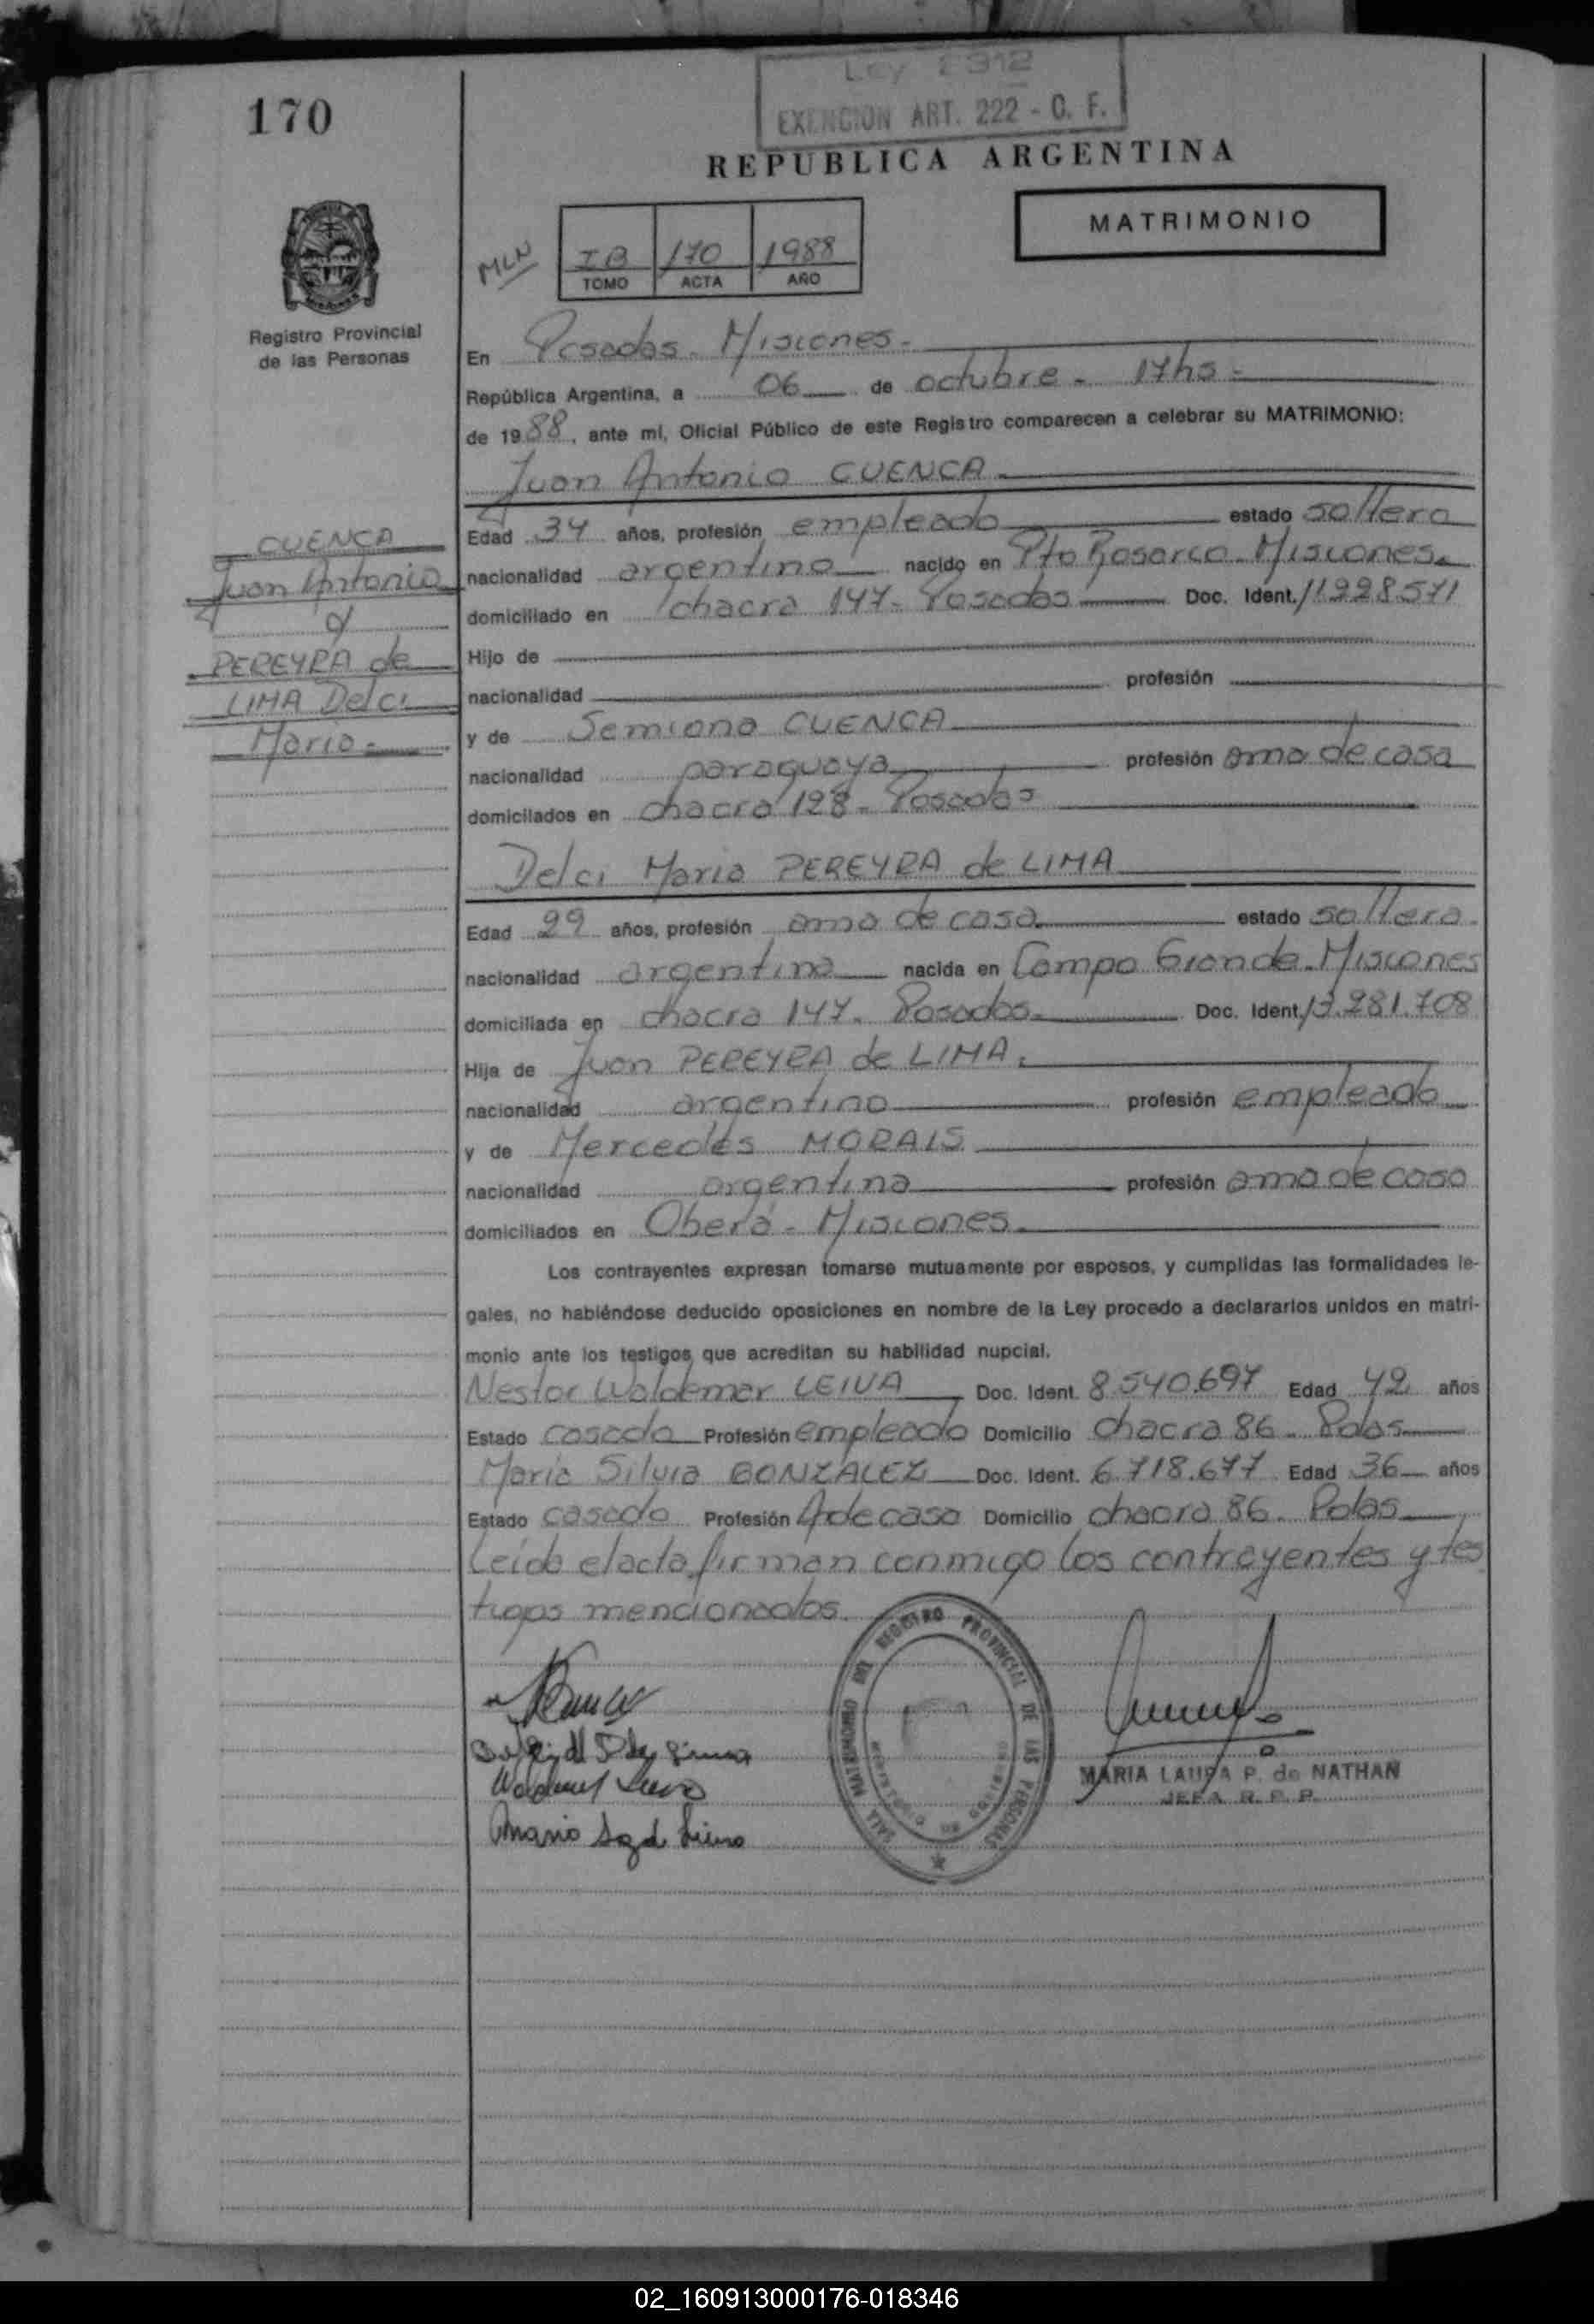 Ley 2312
EXENCION ART. 222 - C. F.
170
REPUBLICA ARGENTINA
MATRIMONIO
MLN
IB 170 1988
TOMO ACTA AÑO
Registro Provincial
de las Personas
En Posadas - Misiones -
República Argentina, a 06 de octubre - 17hs -
de 1988, ante mí, Oficial Público de este Registro comparecen a celebrar su MATRIMONIO:
Juan Antonio CUENCA
CUENCA
Juan Antonio
y
PEREYRA de
LIMA Delci
Maria -
Edad 34 años, profesión empleado estado soltero
nacionalidad argentino nacido en Pto Rosario - Misiones -
domiciliado en chacra 147 - Posadas Doc. Ident. 11.228.571
Hijo de
nacionalidad profesión
y de Semiana CUENCA
nacionalidad paraguaya profesión ama de casa
domicilados en chacra 128 - Posadas
Delci Maria PEREYRA de LIMA
Edad 29 años, profesión ama de casa estado soltera -
nacionalidad argentina nacida en Campo Grande - Misiones
domiciliada en chacra 147 - Posadas - Doc. Ident. 13.281.708
Hija de Juan PEREYRA de LIMA.
nacionalidad argentino profesión empleado
y de Mercedes MORAIS
nacionalidad argentina profesión ama de casa
domiciliados en Oberá - Misiones -
Los contrayentes expresan tomarse mutuamente por esposos, y cumplidas las formalidades le-
gales, no habiéndose deducido oposiciones en nombre de la Ley procedo a declararlos unidos en matri-
monio ante los testigos que acreditan su habilidad nupcial.
Nestor Waldemar LEIVA Doc. Ident. 8.540.697 Edad 42 años
Estado casado Profesión empleado Domicilio chacra 86 - Pdas
Maria Silvia GONZALEZ Doc. Ident. 6.718.677 Edad 36 años
Estado casada Profesión A de casa Domicilio chacra 86 - Pdas
Leida el acta firman conmigo los contrayentes y tes
tigos mencionados.
SALA MATRIMONIO DEL REGISTRO PROVINCIAL DE LAS PERSONAS
MARIA LAURA P. de NATHAN
JEFA R. P. P.
02_160913000176-018346